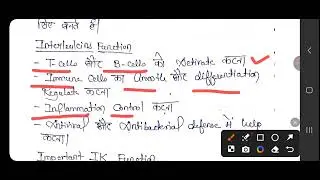 लिए बनते हैं।
Interleukins Function
- T-cells और B-cells को Activate करना
- Immune Cells का Growth और differentiation
Regulate करना
- Inflammation Control करना
- Antiviral और Antibacterial defense में help
करना।
Important IL Function